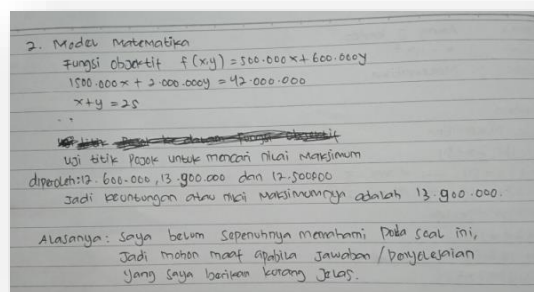 2. Model Matematika
Fungsi objektif f(x,y) = 500.000x + 600.000y
1500.000x + 2.000.000y = 42.000.000
x+y = 25
uji titik pojok untuk mencari nilai Maksimum
diperoleh: 12.600.000, 13.900.000 dan 12.500000
Jadi keuntungan atau nilai Maksimumnya adalah 13.900.000.
Alasanya: saya belum sepenuhnya memahami pada soal ini,
Jadi mohon maaf apabila Jawaban / penyelesaian
yang saya berikan kurang Jelas.